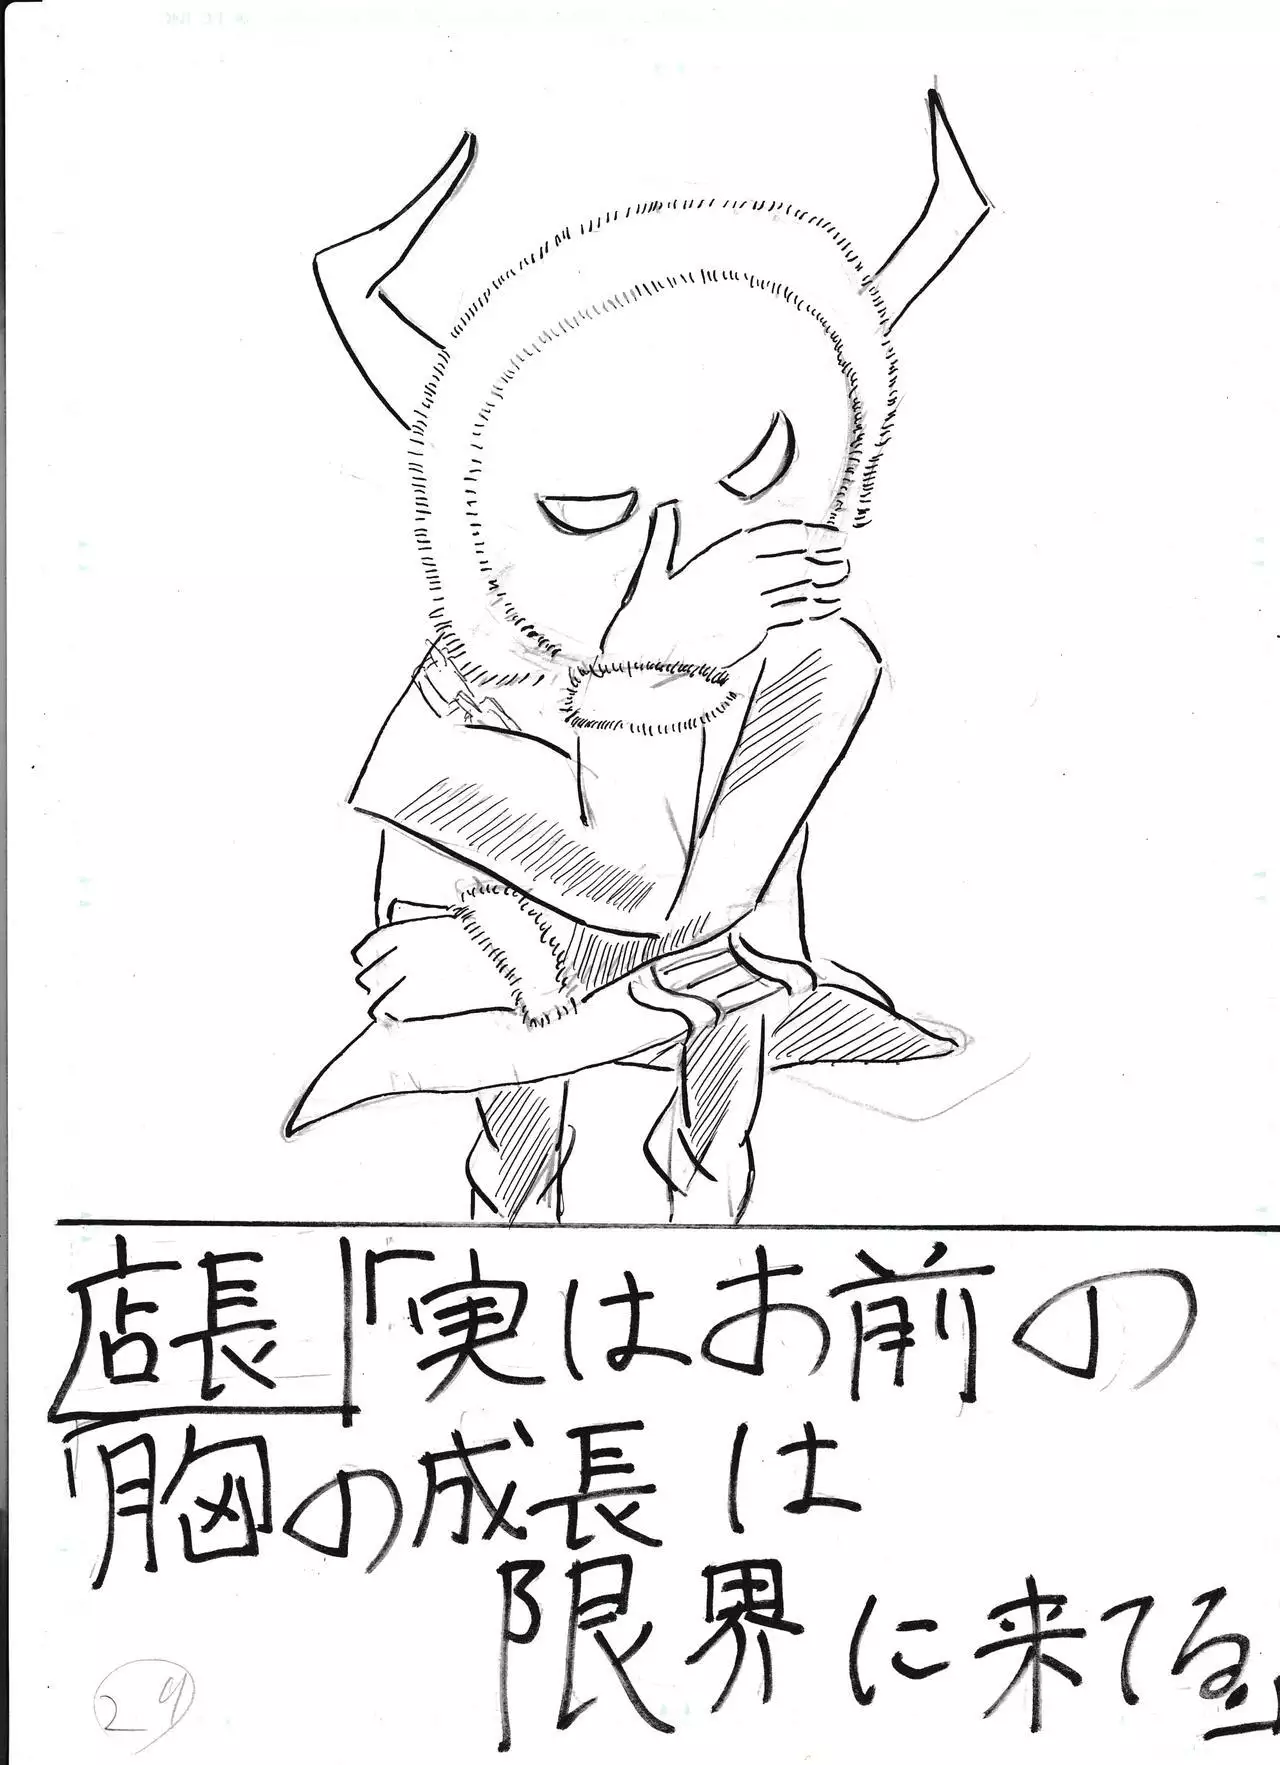 店長「実はお前の
胸の成長は
限界に来てる」
29